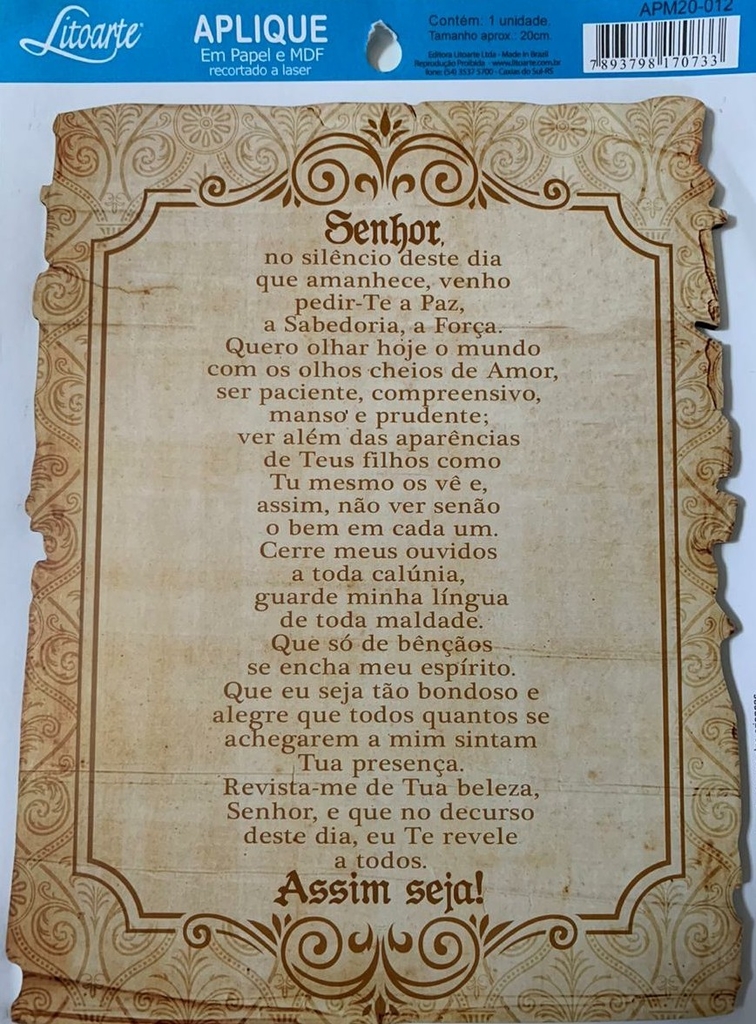 Litoarte
APLIQUE
Em Papel e MDF
recortado a laser
Contém: 1 unidade.
Tamanho aprox.: 20cm.
Editora Litoarte Ltda - Made in Brazil
Reprodução Proibida - www.litoarte.com.br
fone: (54) 3537 5700 - Caxias do Sul-RS
APM20-012
7893798170733
Senhor,
no silêncio deste dia
que amanhece, venho
pedir-Te a Paz,
a Sabedoria, a Força.
Quero olhar hoje o mundo
com os olhos cheios de Amor,
ser paciente, compreensivo,
manso e prudente;
ver além das aparências
de Teus filhos como
Tu mesmo os vê e,
assim, não ver senão
o bem em cada um.
Cerre meus ouvidos
a toda calúnia,
guarde minha língua
de toda maldade.
Que só de bênçãos
se encha meu espírito.
Que eu seja tão bondoso e
alegre que todos quantos se
achegarem a mim sintam
Tua presença.
Revista-me de Tua beleza,
Senhor, e que no decurso
deste dia, eu Te revele
a todos.
Assim seja!